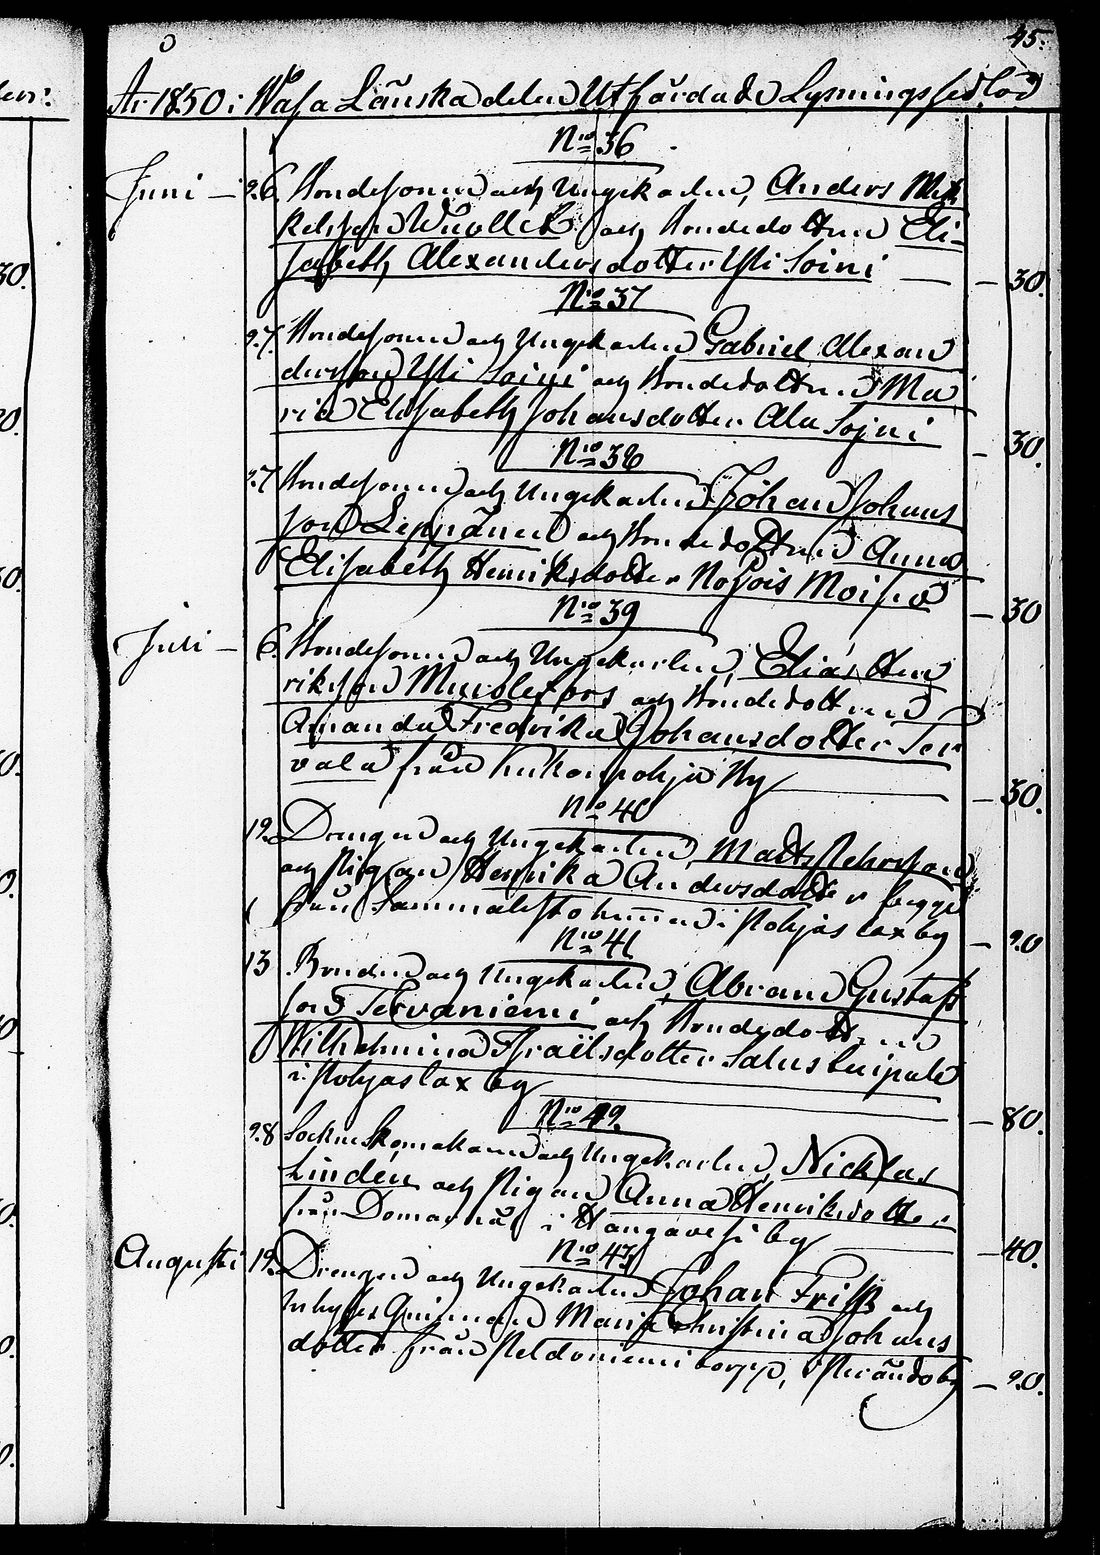 45.
År 1850 i Wasa Länska delen Utfärdade Lysningssedlar
N:o 36
Juni — 26. Bondesonen och Ungekarlen, Anders Mik
kelsson Wuollet och Bondedottren Eli-
sabeth Alexandersdotter Yli Soini — 30.
N:o 37
27. Bondesonen och Ungekarlen Gabriel Alexan
dersson Yli Soini och Bondedottren Ma
ria Elisabeth Johansdotter Ala Sojni — 30.
N:o 38
27 Bondesonen och Ungekarlen Johan Johans
son Leppänen och Bondedottren Anna
Elisabeth Henriksdotter Moisio — 30
N:o 39
Juli — 6. Bondesonen och Ungekarlen, Elias Hen
riksson och Bondedottren
Amanda Fredrika Johansdotter Ter
vala från by — 30.
N:o 40
12. Drengen och Ungekarlen, Matts
och Pigan Henrika Andersdotter begge
från i Pohjaslax by — 20
N:o 41
13 Bonden och Ungekarlen, Abram Gustafs
son Tervaniemi och Bondedottren
Wilhelmina Israëlsdotter
i Pohjaslax by — 80.
N:o 42.
28 Sockneskomakaren och Ungekarlen, Nicklas
Lindén och Pigan Anna Henriksdotter
från Domarnäs i Hangavesi by — 40.
N:o 43
Augusti 12. Drengen och Ungekarlen Johan Friss och
Inhyses Qvinnan Maria Christina Johans
dotter från Peldoniemi torpp, i Strändsby — 20.